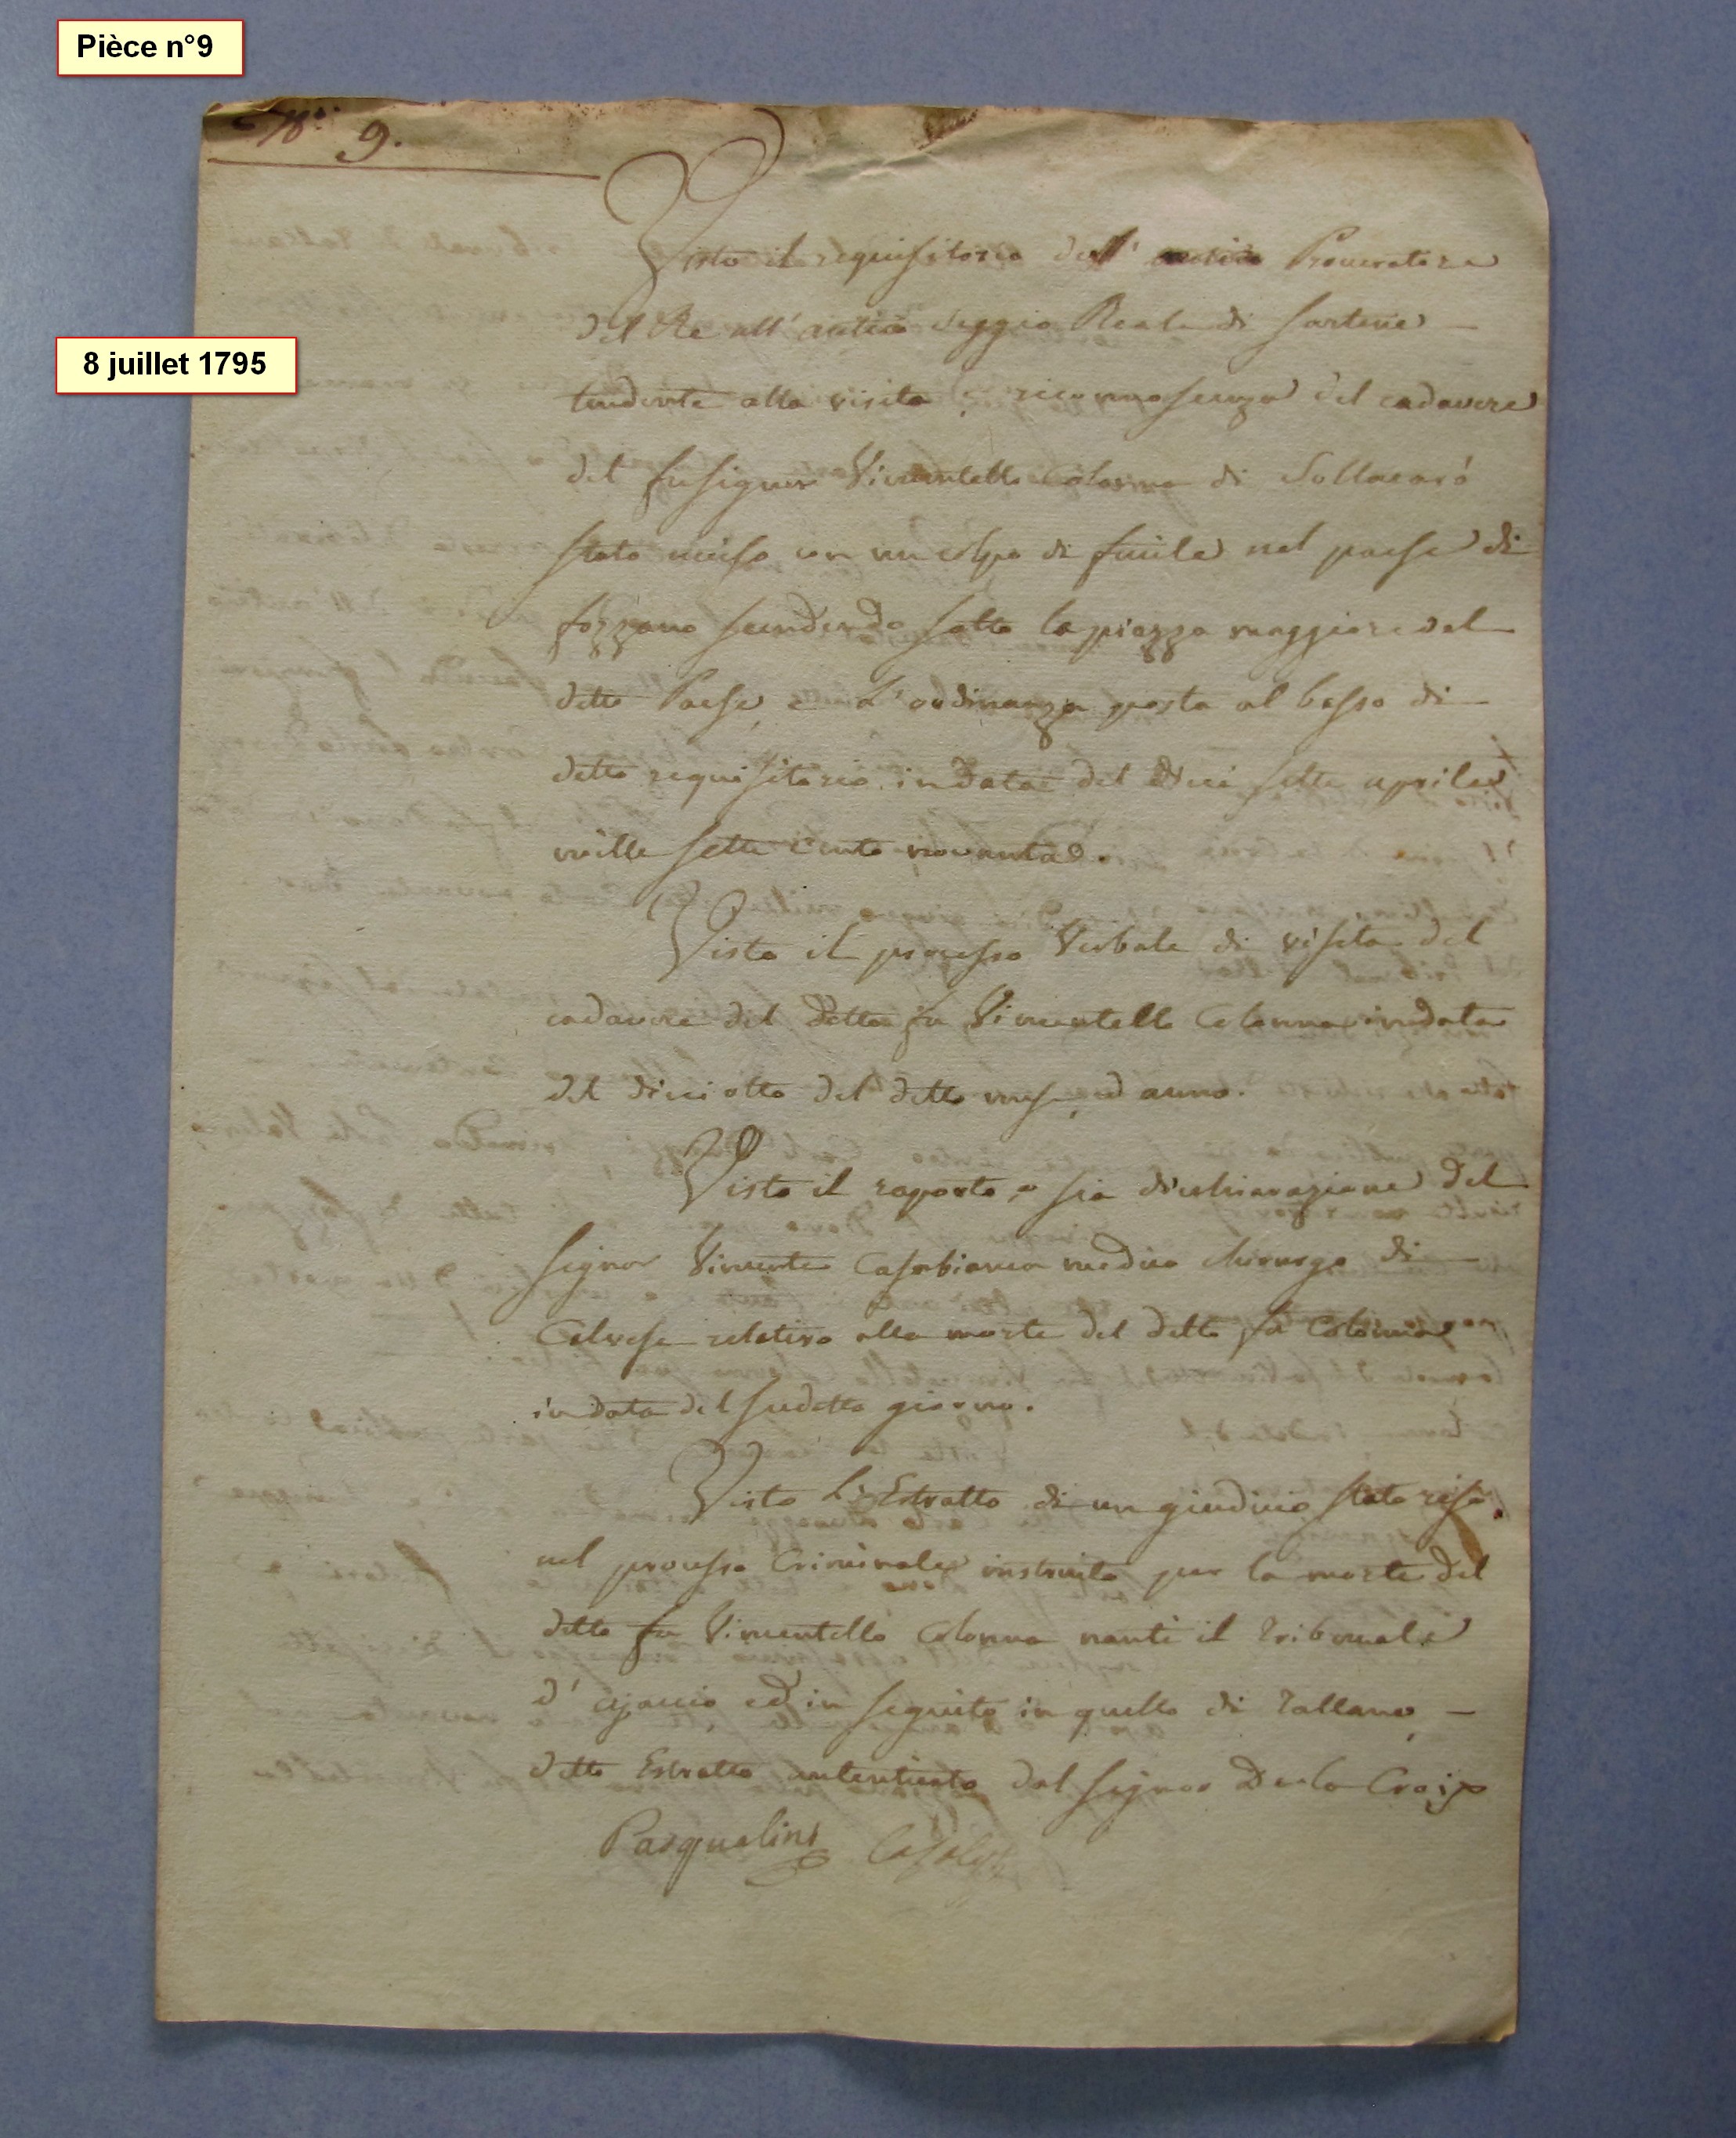 Pièce n°9
N° 9.
8 juillet 1795
Visto il requisitorio dell' antico Procuratore
del Re all' antico Seggio Reale di Sartene
tendente alla visita, e riconnoscenza del cadavere
del fu signor Vincentello Colonna di Sollacarò
stato ucciso con un colpo di fucile nel paese di
fozzano scendendo sotto la piazza maggiore del
detto Paese, e L'ordinanza posta al basso di
detto requisitorio in data del dieci sette aprile
mille sette cento novanta.
Visto il processo Verbale di visita del
cadavere del detto fu Vincentello Colonna in data
del dieciotto del detto mese, ed anno.
Visto il raporto, o sia dichiarazione del
Signor Vincente Casabianca medico chirurgo di
Calvese relativo alla morte del detto fu Colonna
in data del sudetto giorno.
Visto L'Estratto di un giudicio stato reso
nel processo Criminale instruito per la morte del
detto fu Vincentello Colonna nanti il Tribunale
d' ajaccio ed in seguito in quello di Tallano,
detto Estratto autenticato dal Signor De la Croix
Pasqualini